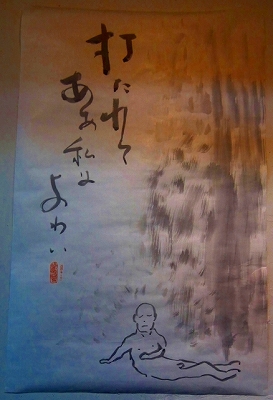 打たれて
ああ私は
よわい